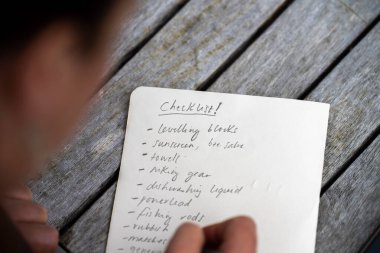 Checklist!
- levelling blocks
- sunscreen, bee sabre
- towels
- hiking gear
- dishwashing liquid
- powerlead
- fishing rods
- rubbish
- matches